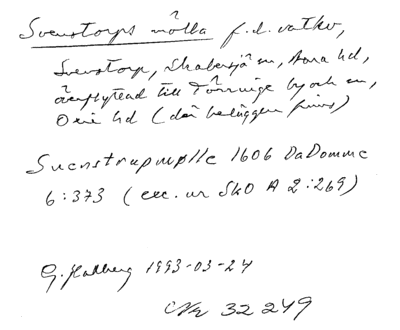 Svenstorps mölla f.d. vattkv,
Svenstorp, Skabersjö sn, Bara hd,
överflyttad till Törringe by och sn,
Oxie hd (där beläggen finns)
Suenstrupmølle 1606 DaDomme
6:373 (exc. ur SkO A 2:269)
G. Hallberg 1993-03-24
32 249